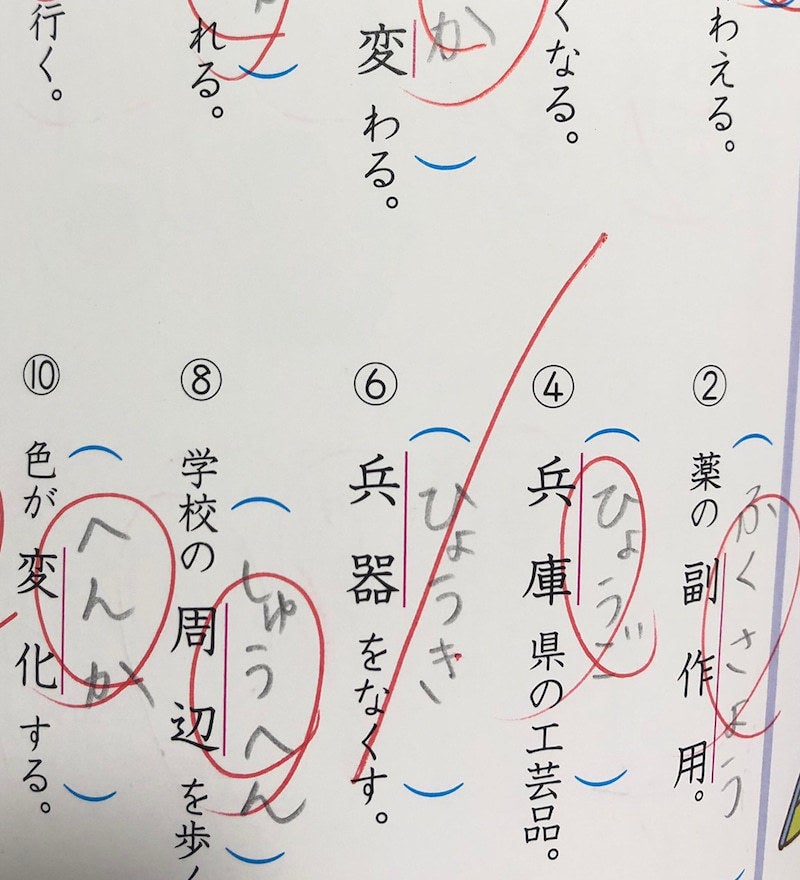 わえる。
くなる。
か）
変わる。
）
れる。
行く。
（ふくさよう）
②薬の副作用。
（ひょうご）
④兵庫県の工芸品。
（ひょうき）
⑥兵器をなくす。
（しゅうへん）
⑧学校の周辺を歩
（へんか）
⑩色が変化する。